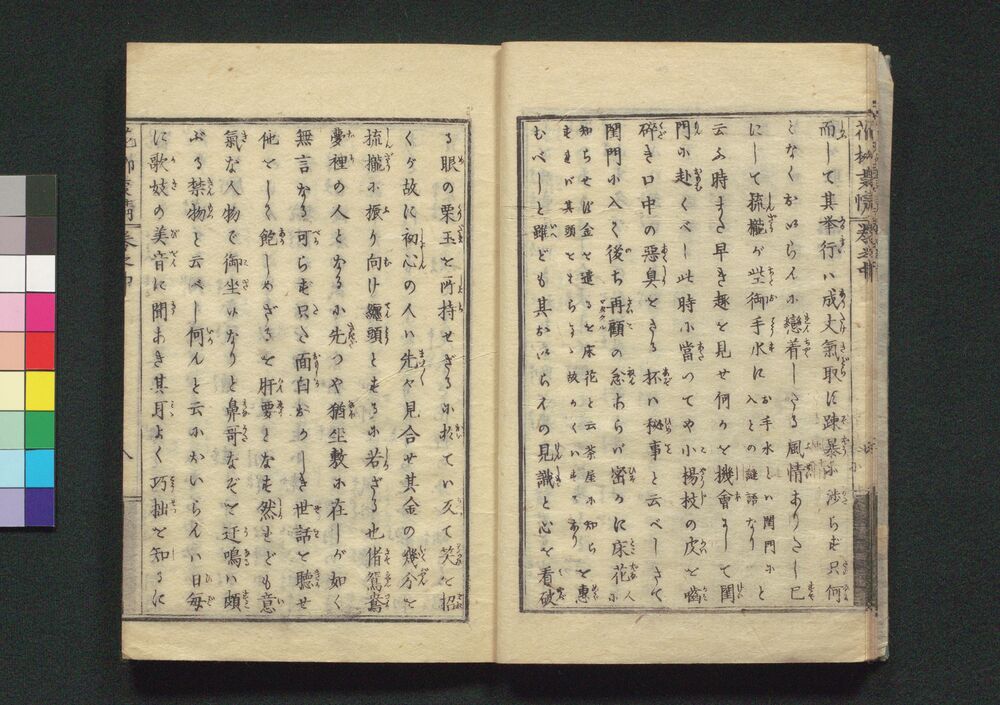 而して其挙行ハ成丈氣取らば踈暴に渉らず只何
となくおいらんに戀着したる風情ありたし已
にして梳櫳が坐御手水に入との謎語なり お手水とハ閨門にと
云ふ時まさ早き趣を見せ何かを機會にして閨
門に赴くべし此時に當つてや小楊枝の皮を嚙
碎き口中の惡臭をさる抔ハ秘事と云べしさて
閨門に入りて後ち再顧の念あらバ密かに床花に
知らせば金を遣るを床花と云茶屋に知らを惠
むべしと雖ども其おいらんの見識と心を看破
る眼の栗玉を所持せざるに於てハ反て笑を招
くが故に初心の人ハ先々見合せ其金の幾分を
梳櫳に振り向け纏頭とするに若ざる也偖鴛鴦
夢裡の人となるに先つや猶坐敷に在しが如く
無言なる可らず只た面白おかしき世話を聽せ
他をして飽しめざるを肝要となす然れども意
氣な人物で御坐いなりと鼻哥なぞを迂鳴ハ頗
ぶる禁物と云べし何んと云においらんハ日毎
に歌妓の美音に聞あき其耳よく巧拙を知るに